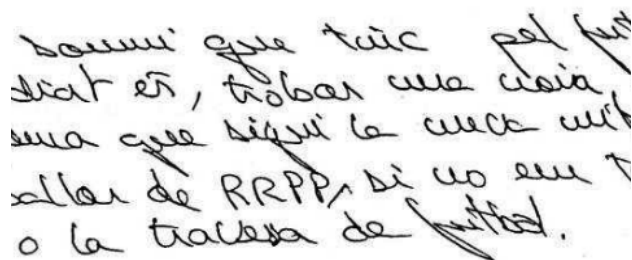 somni que tinc pel fut
diat és, trobar una noia,
ona que sigui la meva mit
ballar de RRPP, si no em t
o la travessa de futbol.